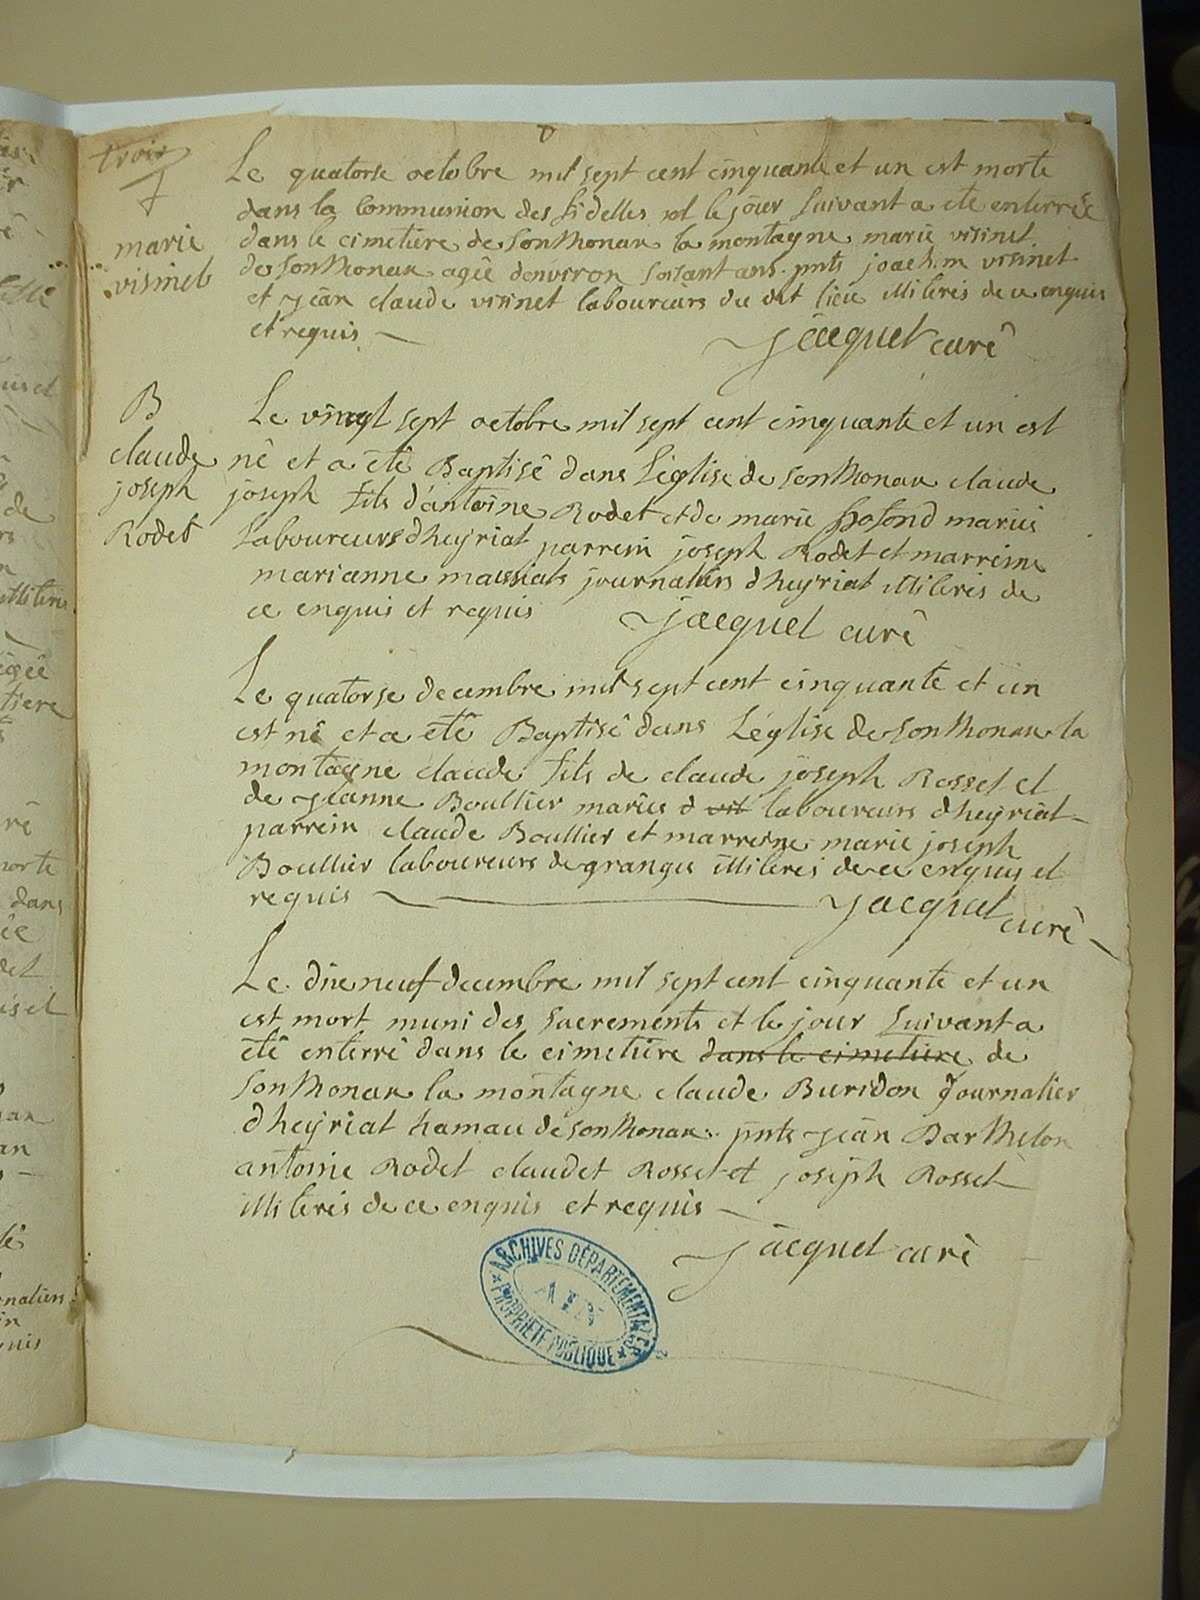 trois
Le quatorse octobre mil sept cent cinquante et un est morte
dans la communion des fidelles et le jour suivant a eté enterrée
dans le cimetiere de sonthonax la montagne marie visinet
de sonthonax agée denviron soisant ans pnts joachim visinet
et jean claude visinet laboureurs du dit lieu illiterés de ce enquis
et requis
jacquet curé
marie
visinet
B
claude
joseph
Rodet
Le vingt sept octobre mil sept cent cinquante et un est
né et a été Baptisé dans l'église de sonthonax claude
joseph fils d'antoine Rodet et de marie mariés
laboureurs d'heyriat parrein joseph Rodet et marreine
marianne massiat journaliers d'heyriat illiterés de
ce enquis et requis jacquet curé
Le quatorse decembre mil sept cent cinquante et un
est né et a été Baptisé dans L'église de sonthonax la
montagne claude fils de claude joseph Rosset et
de jeanne Boullier mariés d laboureurs d'heyriat
parrein claude Boullier et marreine marie joseph
Boullier laboureurs de granges illiterés de ce enquis et
requis jacquet curé
Le dixneuf decembre mil sept cent cinquante et un
est mort muni des sacrements et le jour suivant a
été enterré dans le cimetiere dans le cimetiere de
sonthonax la montagne claude Buridon journalier
d'heyriat hamau de sonthonax pnts jean Barthelon
antoine Rodet claudet Rosset et joseph Rosset
illiterés de ce enquis et requis
jacquet curé
ARCHIVES DÉPARTEMENTALES
AIN
PROPRIÉTÉ PUBLIQUE